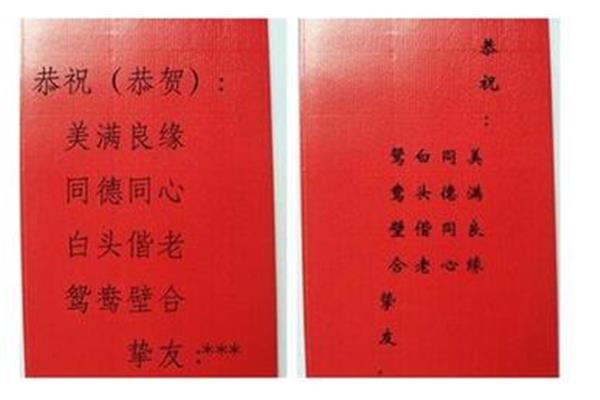 恭祝（恭贺）：
美满良缘
同德同心
白头偕老
鸳鸯壁合
挚友:***
恭祝：
美满良缘
同德同心
白头偕老
鸳鸯壁合
挚友.